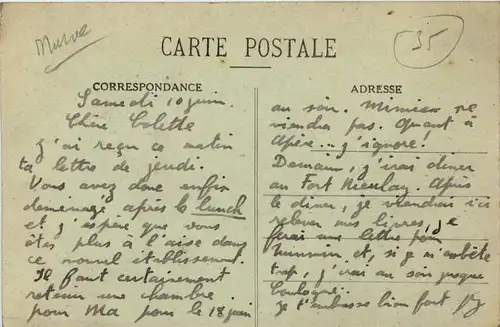 35
CARTE POSTALE
CORRESPONDANCE
Samedi 10 juin.
Chère Colette
J'ai reçu ce matin
ta lettre de jeudi.
Vous avez donc enfin
déménagé après le lunch
et j'espère que vous
êtes plus à l'aise dans
ce nouvel établissement.
Il faut certainement
retenir une chambre
pour Ma pour le 18 juin
ADRESSE
au soir. ne
viendra pas. Quant à
j'ignore.
Demain, j'irai dîner
au Fort Nieulay. Après
le dîner, je viendrai ici
relever mes livres, je
ferai une lettre pour
et, si je m'embête
trop, j'irai au soir jusque
Boulogne.
Je t'embrasse bien fort